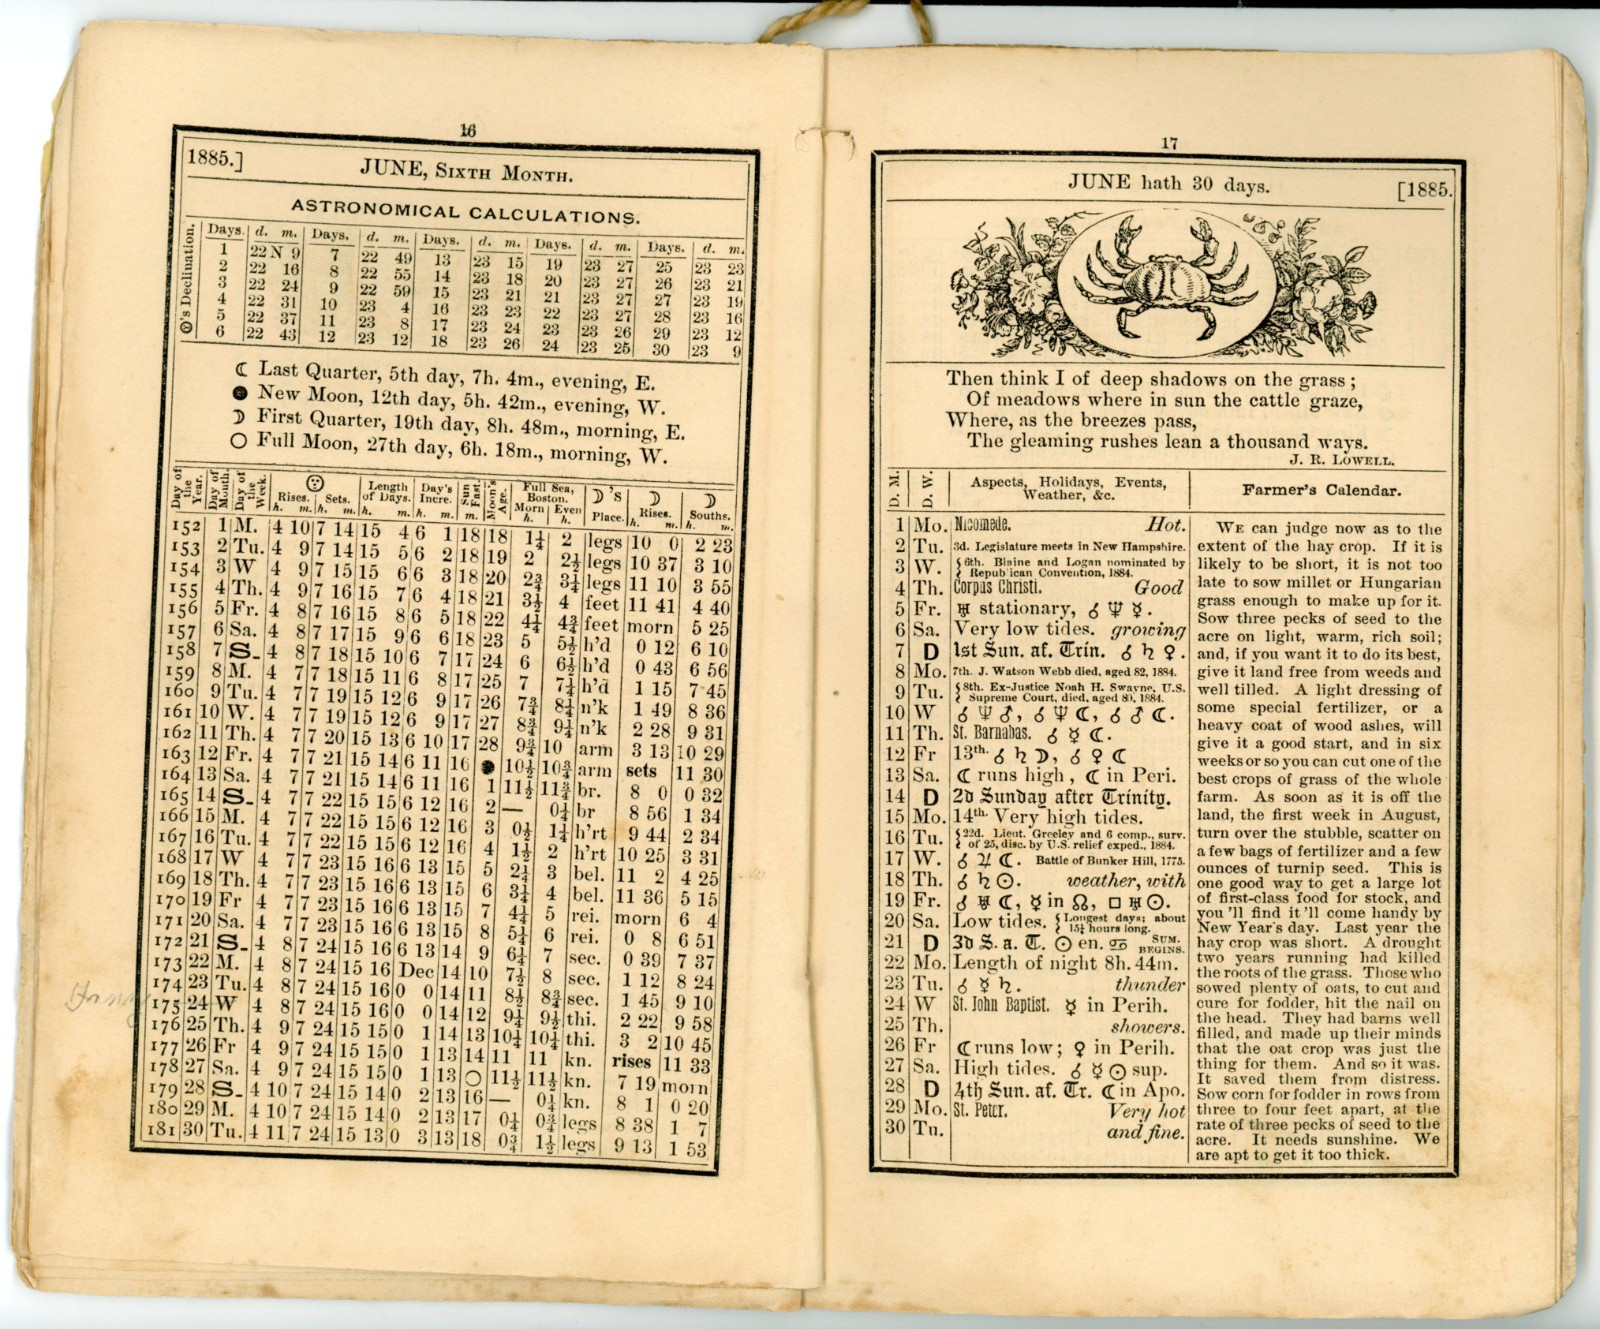 16
1885.] JUNE, SIXTH MONTH.
ASTRONOMICAL CALCULATIONS.
☉'s Declination.
Days. d. m. Days. d. m. Days. d. m. Days. d. m. Days. d. m.
1 22 N 9 7 22 49 13 23 15 19 23 27 25 23 23
2 22 16 8 22 55 14 23 18 20 23 27 26 23 21
3 22 24 9 22 59 15 23 21 21 23 27 27 23 19
4 22 31 10 23 4 16 23 23 22 23 27 28 23 16
5 22 37 11 23 8 17 23 24 23 23 26 29 23 12
6 22 43 12 23 12 18 23 26 24 23 25 30 23 9
☾ Last Quarter, 5th day, 7h. 4m., evening, E.
● New Moon, 12th day, 5h. 42m., evening, W.
☽ First Quarter, 19th day, 8h. 48m., morning, E.
○ Full Moon, 27th day, 6h. 18m., morning, W.
Day of the Year. Day of Month. Day of the Week. ☉ Rises. h. m. Sets. h. m. Length of Days. h. m. Day's Incre. h. m. Sun Fast. m. Moon's Age. Full Sea, Boston. Morn h. Even h. ☽'s Place. ☽ Rises. h. m. ☽ Souths. h. m.
152 1 M. 4 10 7 14 15 4 6 1 18 18 1¼ 2 legs 10 0 2 23
153 2 Tu. 4 9 7 14 15 5 6 2 18 19 2 2½ legs 10 37 3 10
154 3 W 4 9 7 15 15 6 6 3 18 20 2¾ 3¼ legs 11 10 3 55
155 4 Th. 4 9 7 16 15 7 6 4 18 21 3½ 4 feet 11 41 4 40
156 5 Fr. 4 8 7 16 15 8 6 5 18 22 4¼ 4¾ feet morn 5 25
157 6 Sa. 4 8 7 17 15 9 6 6 18 23 5 5½ h'd 0 12 6 10
158 7 S. 4 8 7 18 15 10 6 7 17 24 6 6½ h'd 0 43 6 56
159 8 M. 4 7 7 18 15 11 6 8 17 25 7 7¼ h'd 1 15 7 45
160 9 Tu. 4 7 7 19 15 12 6 9 17 26 7¾ 8¼ n'k 1 49 8 36
161 10 W. 4 7 7 19 15 12 6 9 17 27 8¾ 9¼ n'k 2 28 9 31
162 11 Th. 4 7 7 20 15 13 6 10 17 28 9¾ 10 arm 3 13 10 29
163 12 Fr. 4 7 7 21 15 14 6 11 16 ● 10½ 10¾ arm sets 11 30
164 13 Sa. 4 7 7 21 15 14 6 11 16 1 11½ 11¾ br. 8 0 0 32
165 14 S. 4 7 7 22 15 15 6 12 16 2 — 0¼ br 8 56 1 34
166 15 M. 4 7 7 22 15 15 6 12 16 3 0½ 1¼ h'rt 9 44 2 34
167 16 Tu. 4 7 7 22 15 15 6 12 16 4 1½ 2 h'rt 10 25 3 31
168 17 W 4 7 7 23 15 16 6 13 15 5 2¼ 3 bel. 11 2 4 25
169 18 Th. 4 7 7 23 15 16 6 13 15 6 3¼ 4 bel. 11 36 5 15
170 19 Fr 4 7 7 23 15 16 6 13 15 7 4¼ 5 rei. morn 6 4
171 20 Sa. 4 7 7 23 15 16 6 13 15 8 5¼ 6 rei. 0 8 6 51
172 21 S. 4 8 7 24 15 16 6 13 14 9 6¼ 7 sec. 0 39 7 37
173 22 M. 4 8 7 24 15 16 Dec 14 10 7½ 8 sec. 1 12 8 24
174 23 Tu. 4 8 7 24 15 16 0 0 14 11 8½ 8¾ sec. 1 45 9 10
175 24 W 4 8 7 24 15 16 0 0 14 12 9¼ 9½ thi. 2 22 9 58
176 25 Th. 4 9 7 24 15 15 0 1 14 13 10¼ 10¼ thi. 3 2 10 45
177 26 Fr 4 9 7 24 15 15 0 1 13 14 11 11 kn. rises 11 33
178 27 Sa. 4 9 7 24 15 15 0 1 13 ○ 11½ 11½ kn. 7 19 morn
179 28 S. 4 10 7 24 15 14 0 2 13 16 — 0¼ kn. 8 1 0 20
180 29 M. 4 10 7 24 15 14 0 2 13 17 0¼ 0¾ legs 8 38 1 7
181 30 Tu. 4 11 7 24 15 13 0 3 13 18 0¾ 1½ legs 9 13 1 53
17
JUNE hath 30 days. [1885.
Then think I of deep shadows on the grass;
Of meadows where in sun the cattle graze,
Where, as the breezes pass,
The gleaming rushes lean a thousand ways.
J. R. LOWELL.
D. M. D. W. Aspects, Holidays, Events, Weather, &c.
1 Mo. Nicomede. Hot.
2 Tu. 3d. Legislature meets in New Hampshire.
3 W. { 6th. Blaine and Logan nominated by
Republican Convention, 1884.
4 Th. Corpus Christi. Good
5 Fr. ♅ stationary, ☌ ♆ ☿.
6 Sa. Very low tides. growing
7 D 1st Sun. af. Trin. ☌ ♄ ♀.
8 Mo. 7th. J. Watson Webb died, aged 82, 1884.
9 Tu. { 8th. Ex-Justice Noah H. Swayne, U.S.
Supreme Court, died, aged 80, 1884.
10 W ☌ ♆ ♂, ☌ ♆ ☾, ☌ ♂ ☾.
11 Th. St. Barnabas. ☌ ☿ ☾.
12 Fr 13th. ☌ ♄ ☽, ☌ ♀ ☾
13 Sa. ☾ runs high, ☾ in Peri.
14 D 2d Sunday after Trinity.
15 Mo. 14th. Very high tides.
16 Tu. { 22d. Lieut. Greeley and 6 comp., surv.
of 25, disc. by U.S. relief exped., 1884.
17 W. ☌ ♃ ☾. Battle of Bunker Hill, 1775.
18 Th. ☌ ♄ ☉. weather, with
19 Fr. ☌ ♅ ☾, ☿ in ☊, □ ♅ ☉.
20 Sa. Low tides. { Longest days; about
15¼ hours long.
21 D 3d S. a. T. ☉ en. ♋ SUM. BEGINS.
22 Mo. Length of night 8h. 44m.
23 Tu. ☌ ☿ ♄. thunder
24 W St. John Baptist. ☿ in Perih.
25 Th. showers.
26 Fr ☾ runs low; ♀ in Perih.
27 Sa. High tides. ☌ ☿ ☉ sup.
28 D 4th Sun. af. Tr. ☾ in Apo.
29 Mo. St. Peter. Very hot
30 Tu. and fine.
Farmer's Calendar.
WE can judge now as to the
extent of the hay crop. If it is
likely to be short, it is not too
late to sow millet or Hungarian
grass enough to make up for it.
Sow three pecks of seed to the
acre on light, warm, rich soil;
and, if you want it to do its best,
give it land free from weeds and
well tilled. A light dressing of
some special fertilizer, or a
heavy coat of wood ashes, will
give it a good start, and in six
weeks or so you can cut one of the
best crops of grass of the whole
farm. As soon as it is off the
land, the first week in August,
turn over the stubble, scatter on
a few bags of fertilizer and a few
ounces of turnip seed. This is
one good way to get a large lot
of first-class food for stock, and
you'll find it'll come handy by
New Year's day. Last year the
hay crop was short. A drought
two years running had killed
the roots of the grass. Those who
sowed plenty of oats, to cut and
cure for fodder, hit the nail on
the head. They had barns well
filled, and made up their minds
that the oat crop was just the
thing for them. And so it was.
It saved them from distress.
Sow corn for fodder in rows from
three to four feet apart, at the
rate of three pecks of seed to the
acre. It needs sunshine. We
are apt to get it too thick.